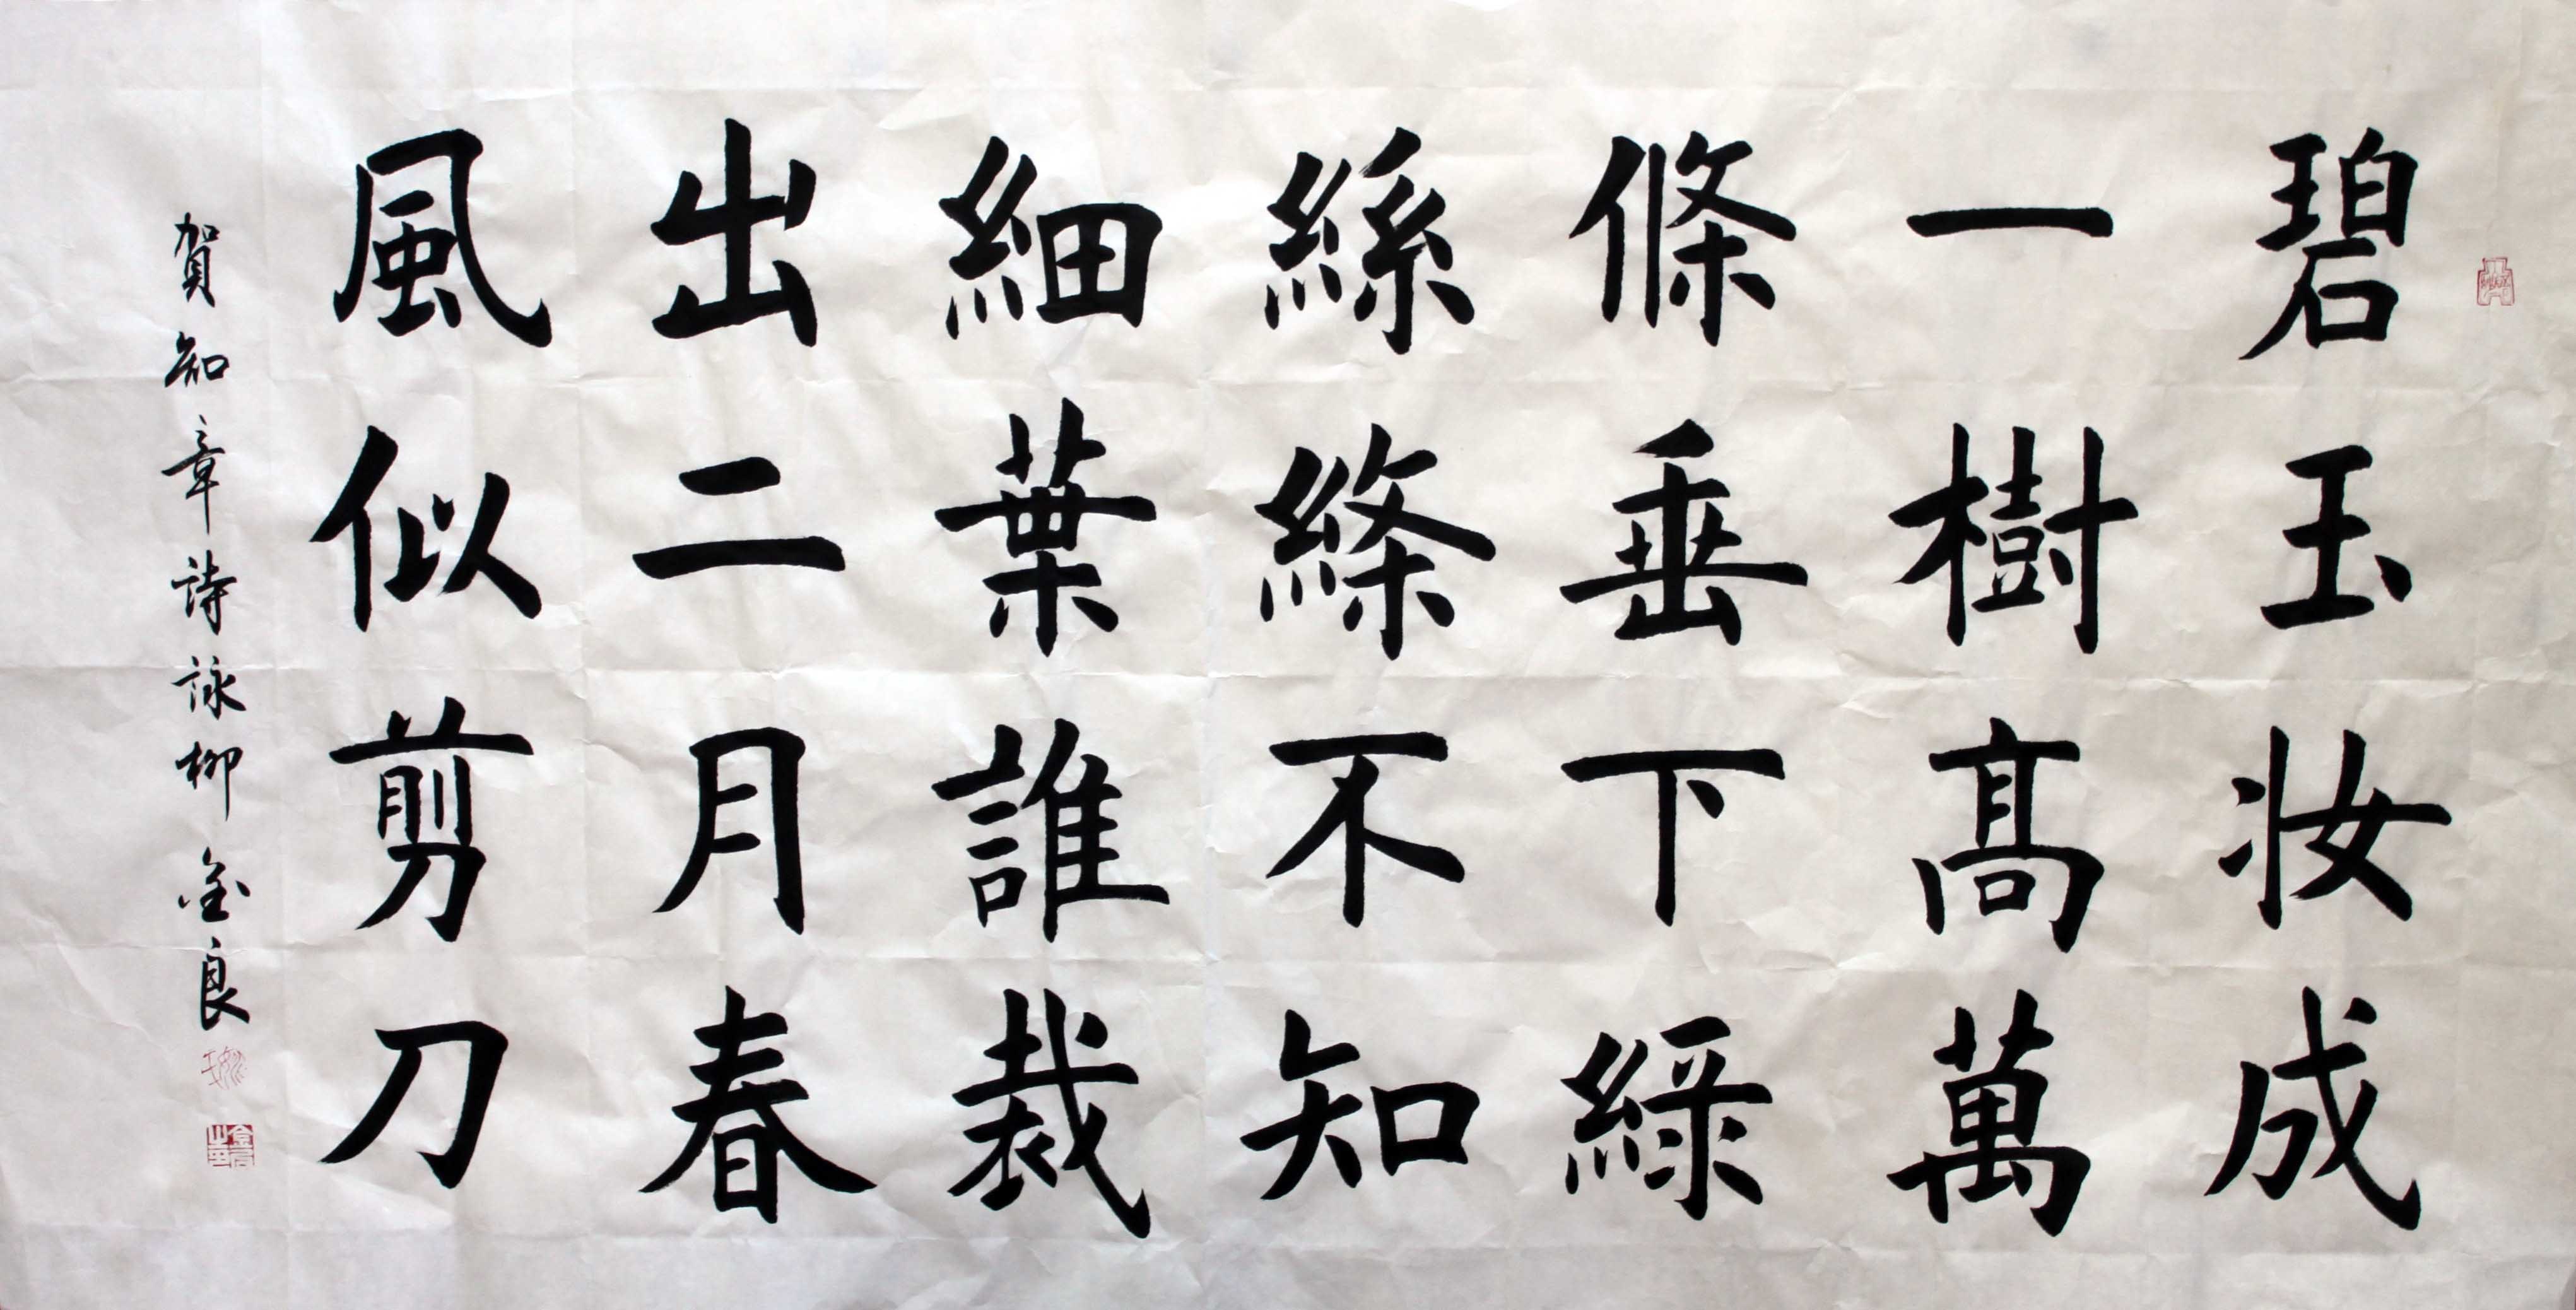 碧玉妝成
一樹高萬
條垂下綠
絲絛不知
細葉誰裁
出二月春
風似剪刀
賀知章詩詠柳 金良